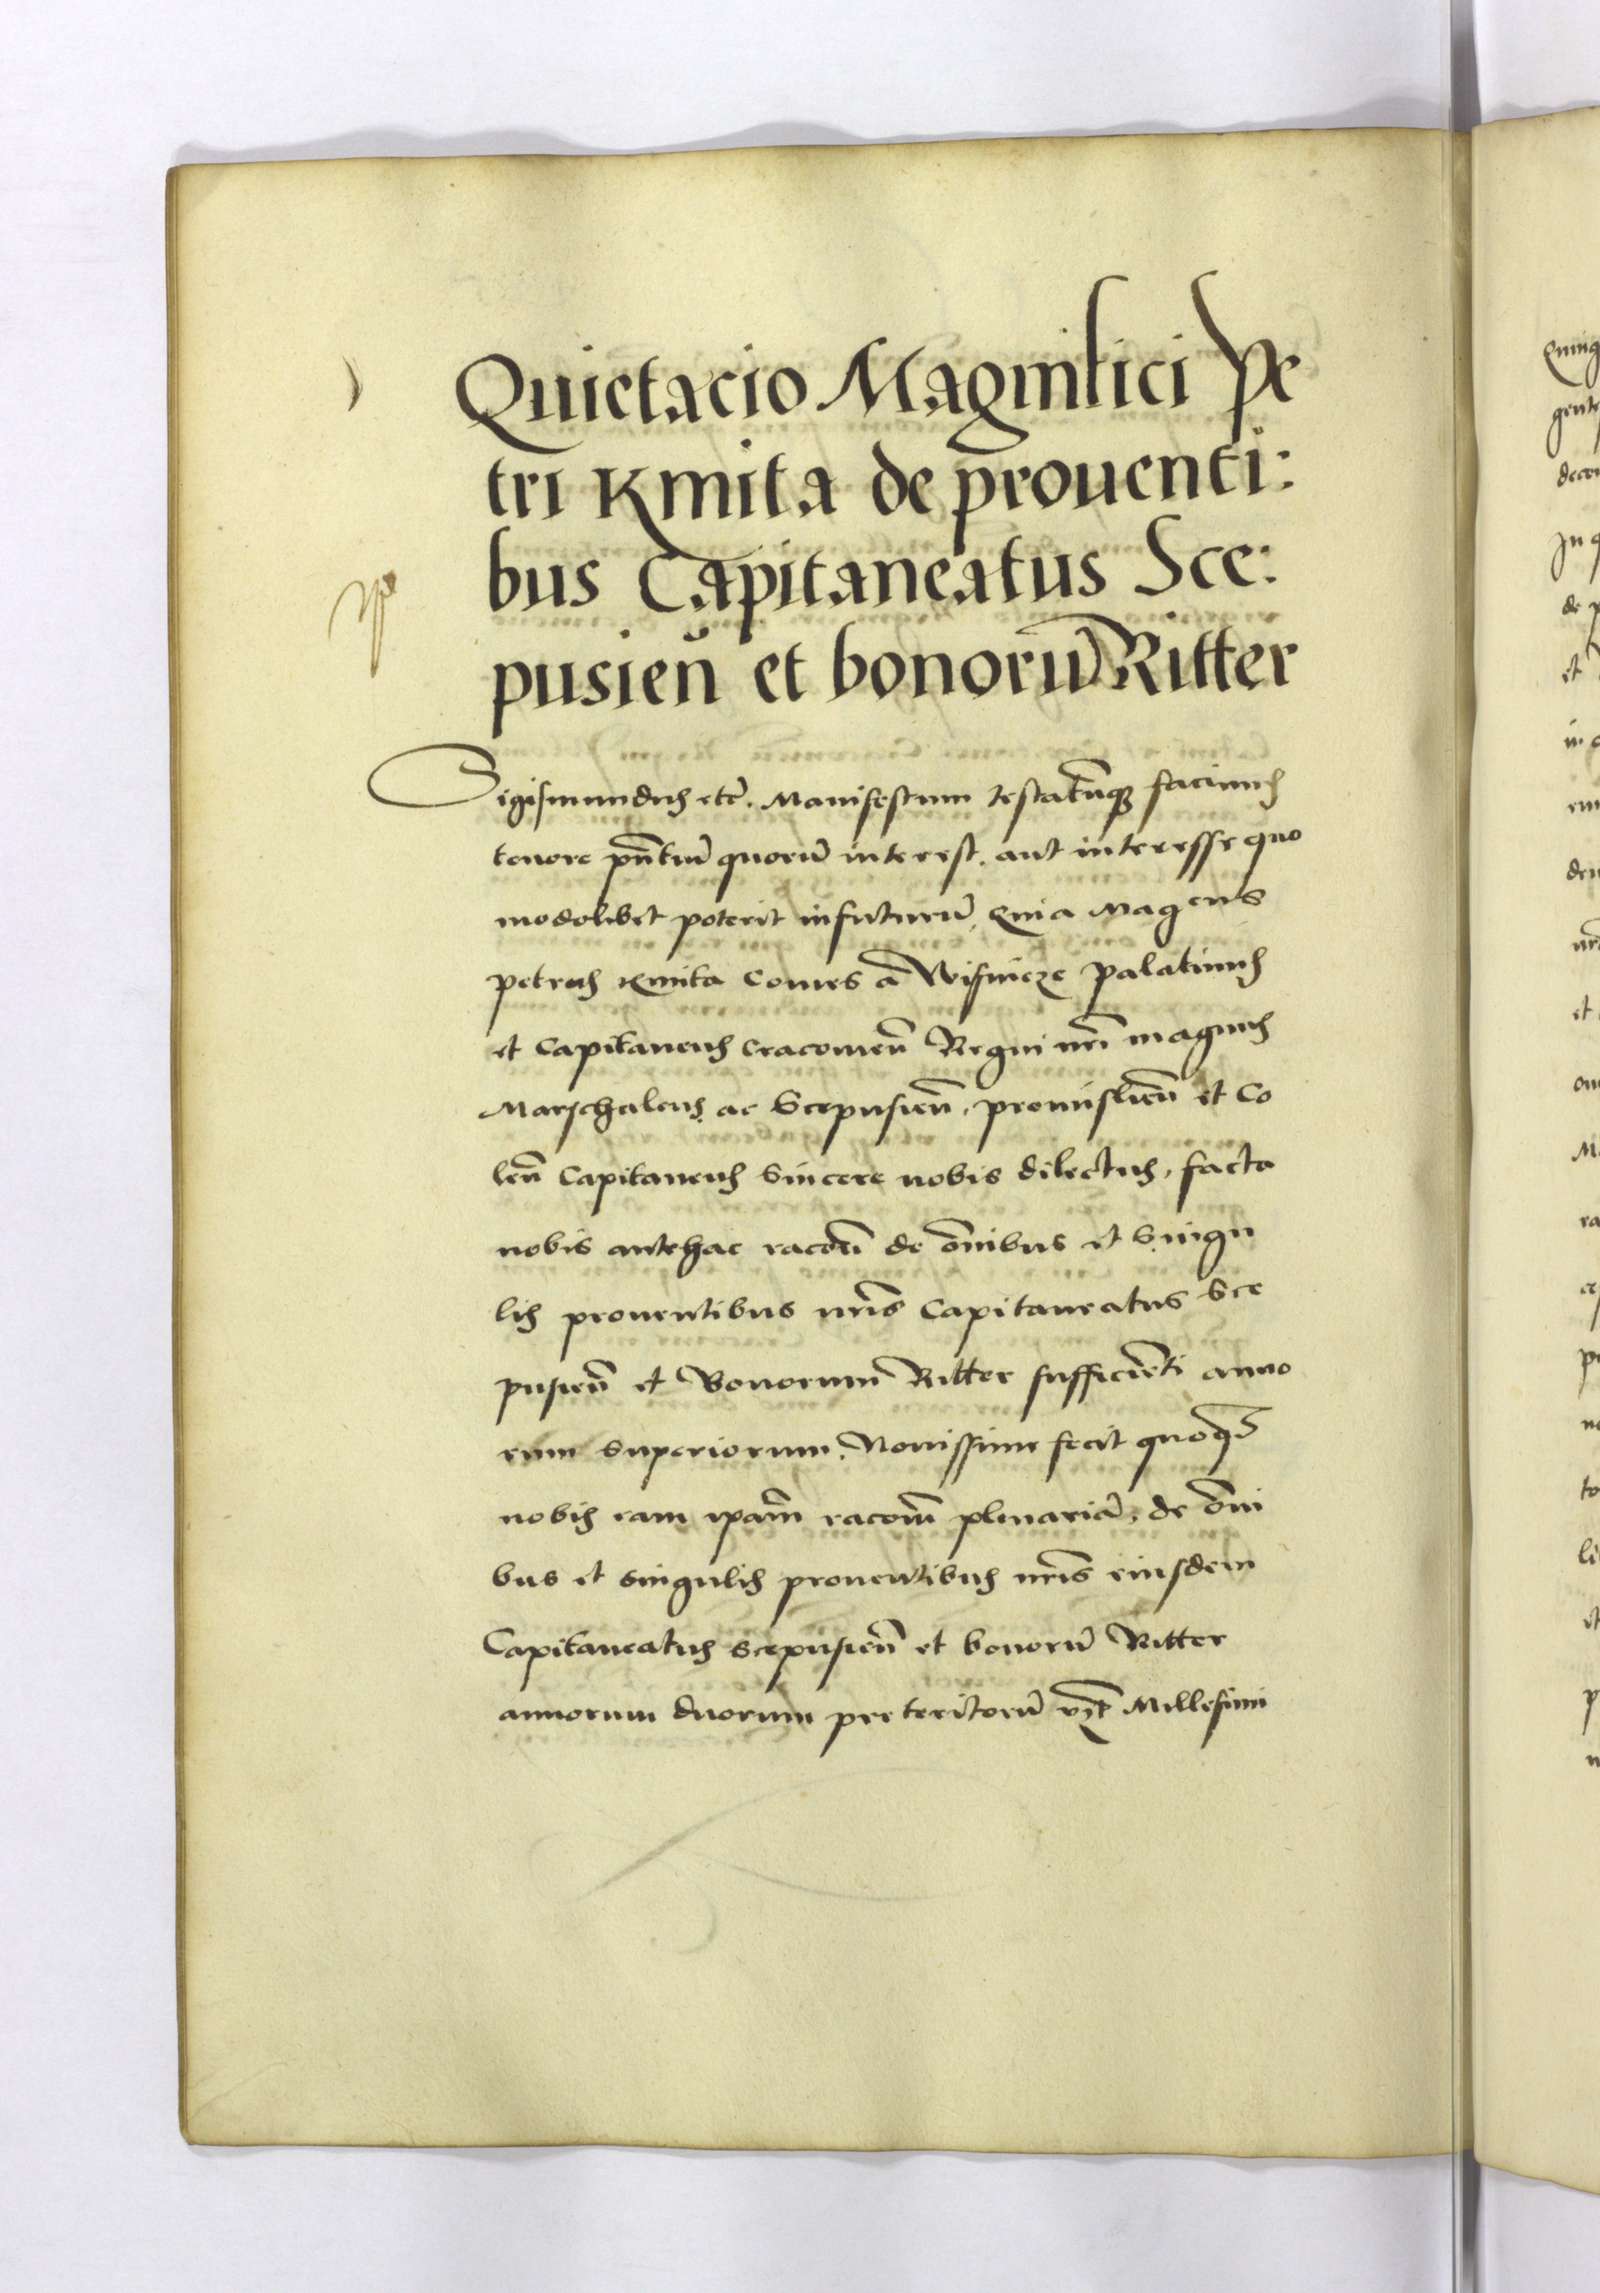 Quietacio Magnifici Pe
tri Kmita de prouenti:
bus Capitaneatus Sce:
pusieñ et bonorũ Ritter
Sigismundus etc̃. Manifestum testatũq3 facimus
tenore pñtiũ quorũ interest, aut interesse quo
modolibet poterit infuturũ, Quia Mag cus
Petrus Kmita Comes a Wisnicze Palatinus
et Capitaneus Cracouieñ Regni nr̃i magnus
Marschalcus, ac Scepusieñ, Premislieñ et Co
leñ Capitaneus Sincere nobis dilectus, facta
nobis antehac racoñ de oñibus et Singu
lis prouentibus nr̃is Capitaneatus Sce
pusieñ et Bonorum Ritter sufficieñti anno
rum Superiorum, Nouissime fecit quoq3
nobis eam ip̃am racoñm plenariã, de oñi
bus et Singulis prouentibus nr̃is eiusdem
Capitaneatus Scepusieñ et bonorũ Ritter
annorum duorum preteritorũ vz̃t Millesimi